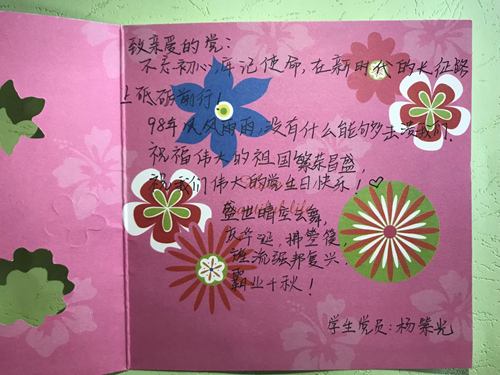 致亲爱的党：
不忘初心，牢记使命，在新时代的长征路
上砥砺前行！
98年风风雨雨，没有什么能够击溃我们.
祝福伟大的祖国繁荣昌盛，
祝我们伟大的党生日快乐！♡
盛世晴空云舞，
庆华诞，拂
流强邦复兴.
霸业千秋！
学生党员：杨 光